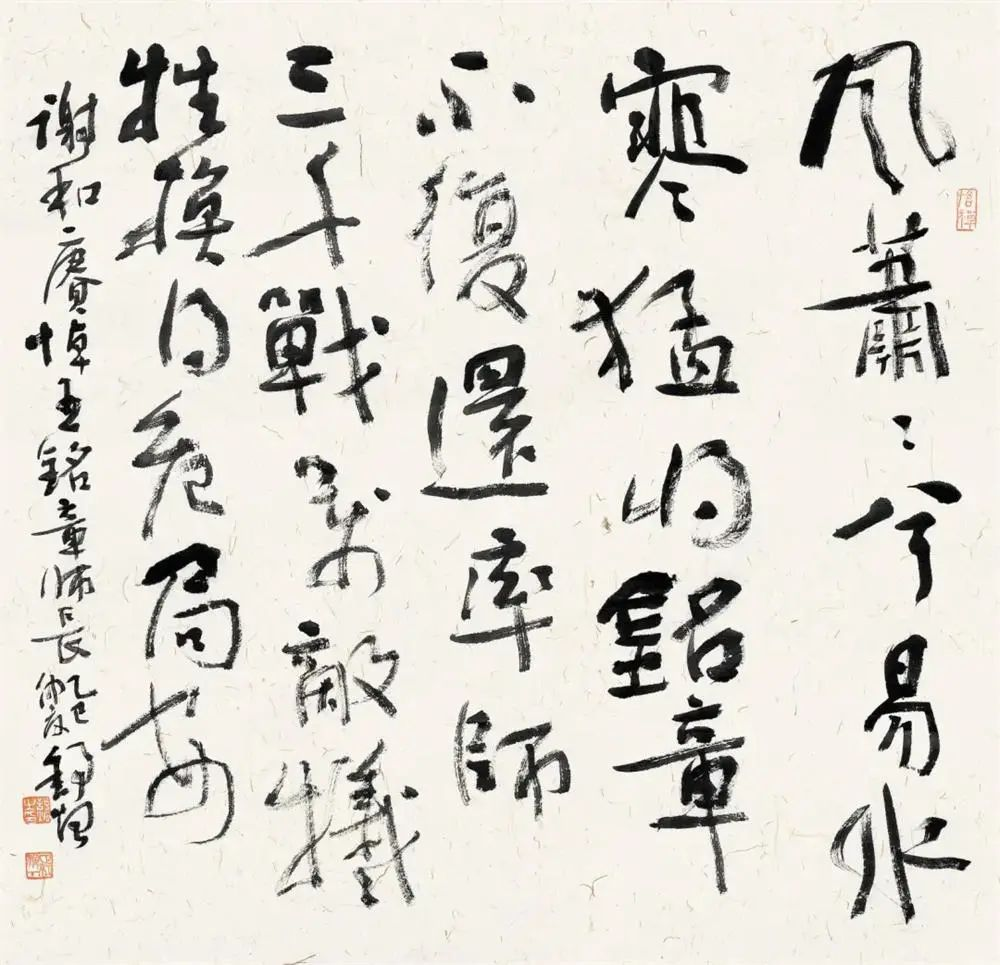 風蕭〻兮易水
寒猛將銘章
不復還率師
三千戰萬敵犧
牲換得危局安
謝和賡悼王銘章師長乙巳仲夏